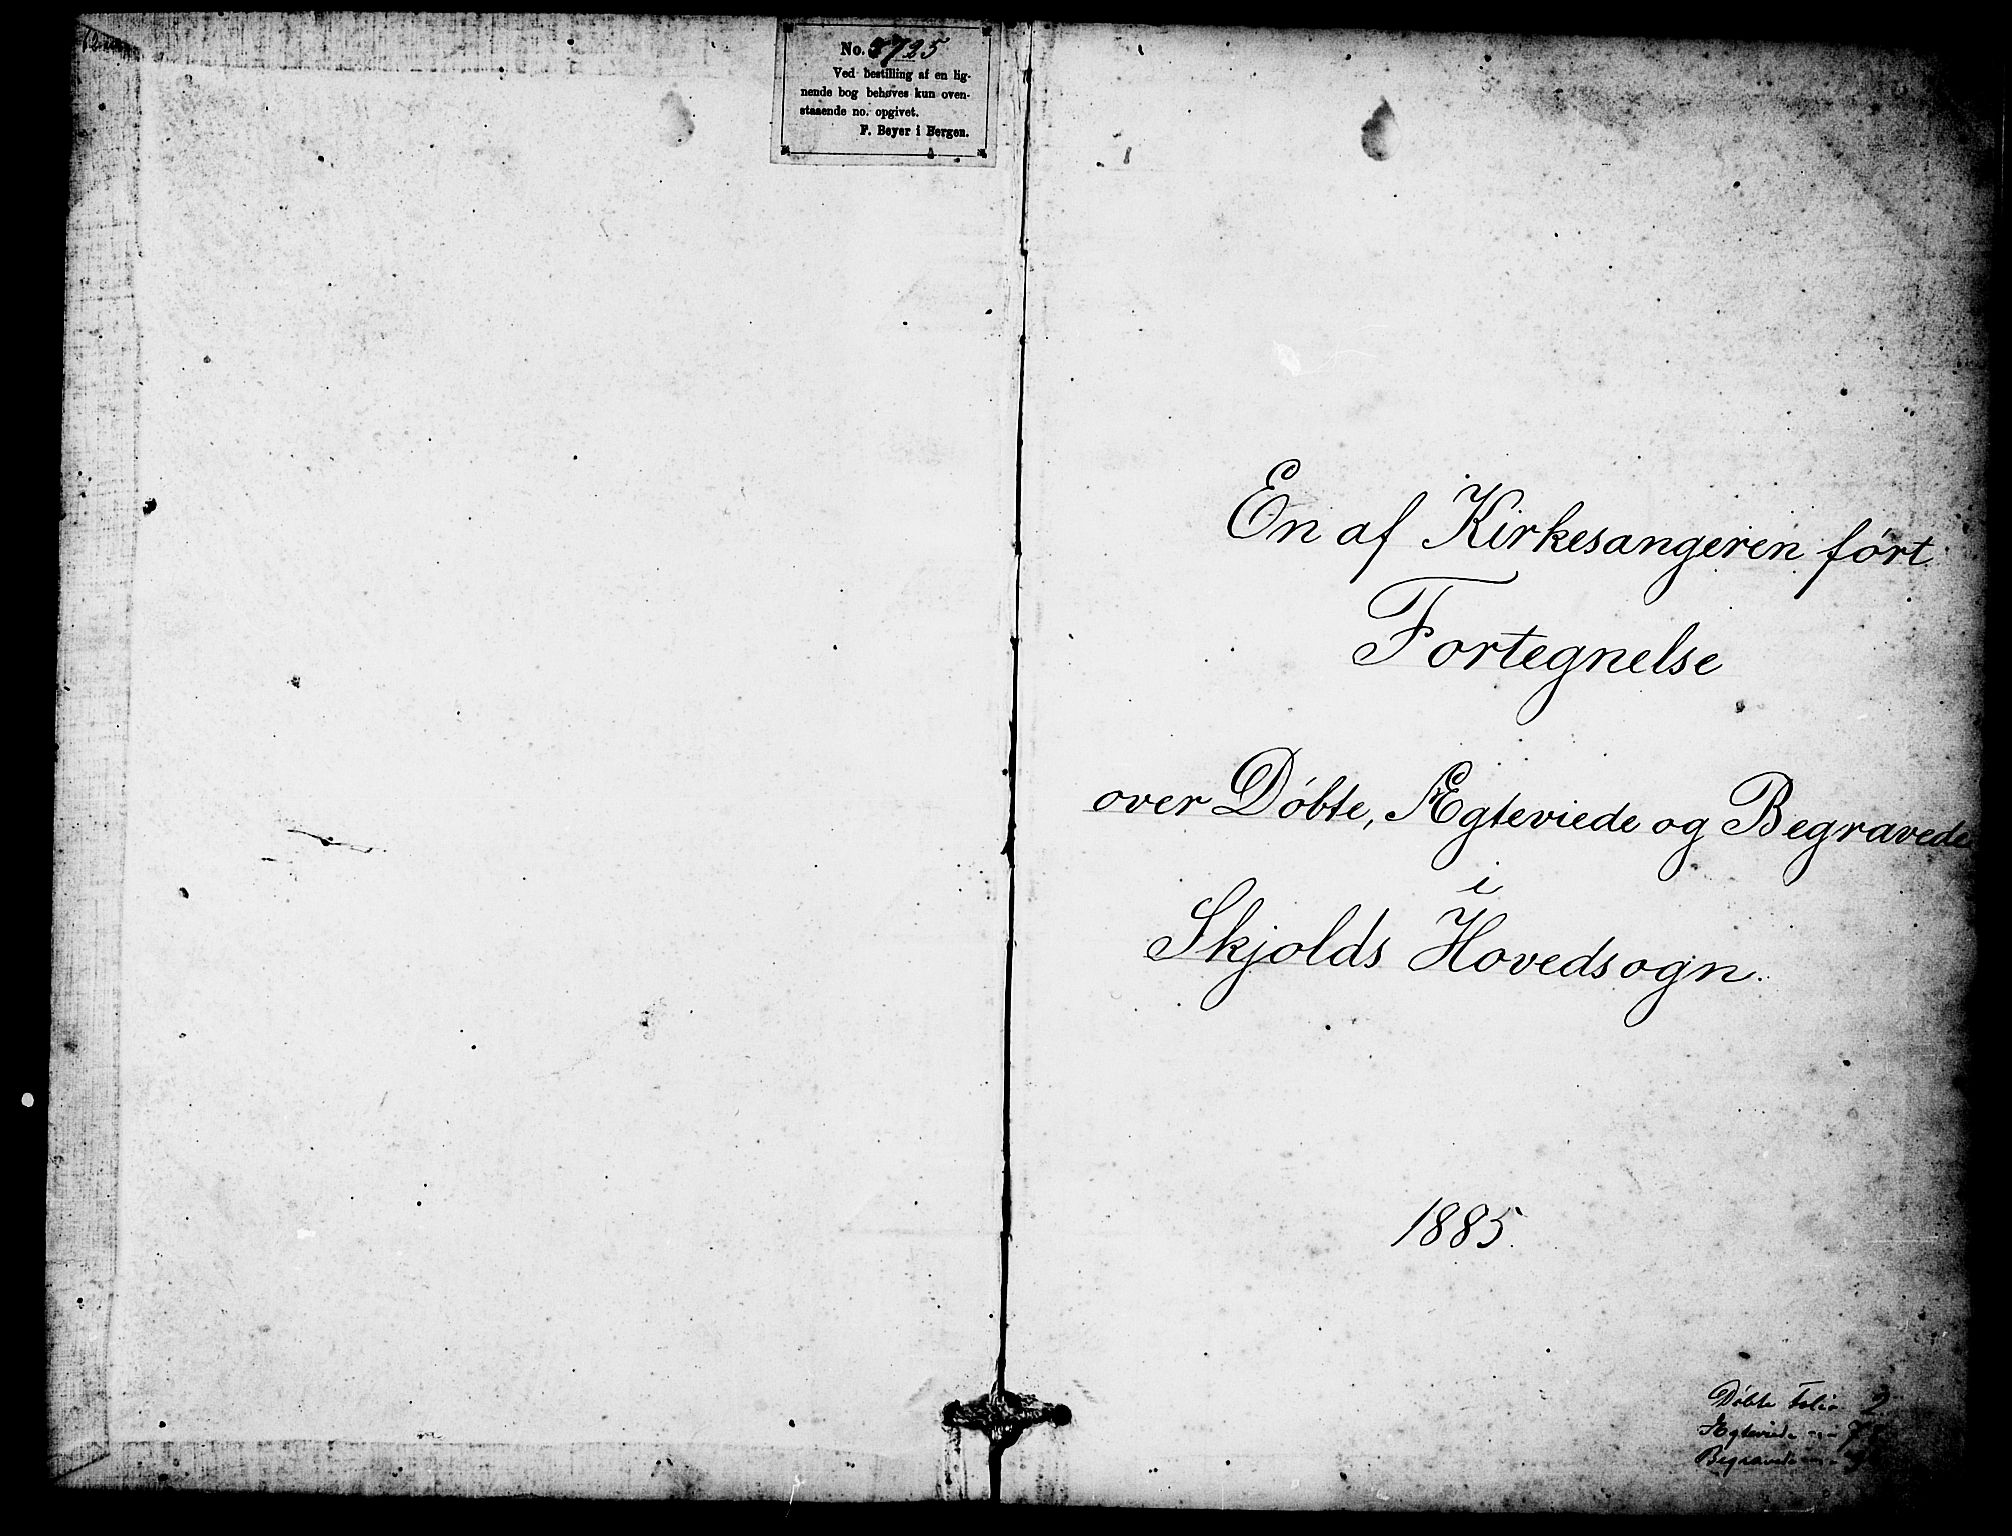 No. 5725
Ved bestilling af en lig-
nende bog behøves kun oven-
staaende no. opgivet.
F. Beyer i Bergen.
En af Kirkesangeren ført
Fortegnelse
over Døbte, Ægteviede og Begravede
i
Skjolds Hovedsogn.
1885.
Døbte Folio 2
Ægteviede -"-
Begravede -"-